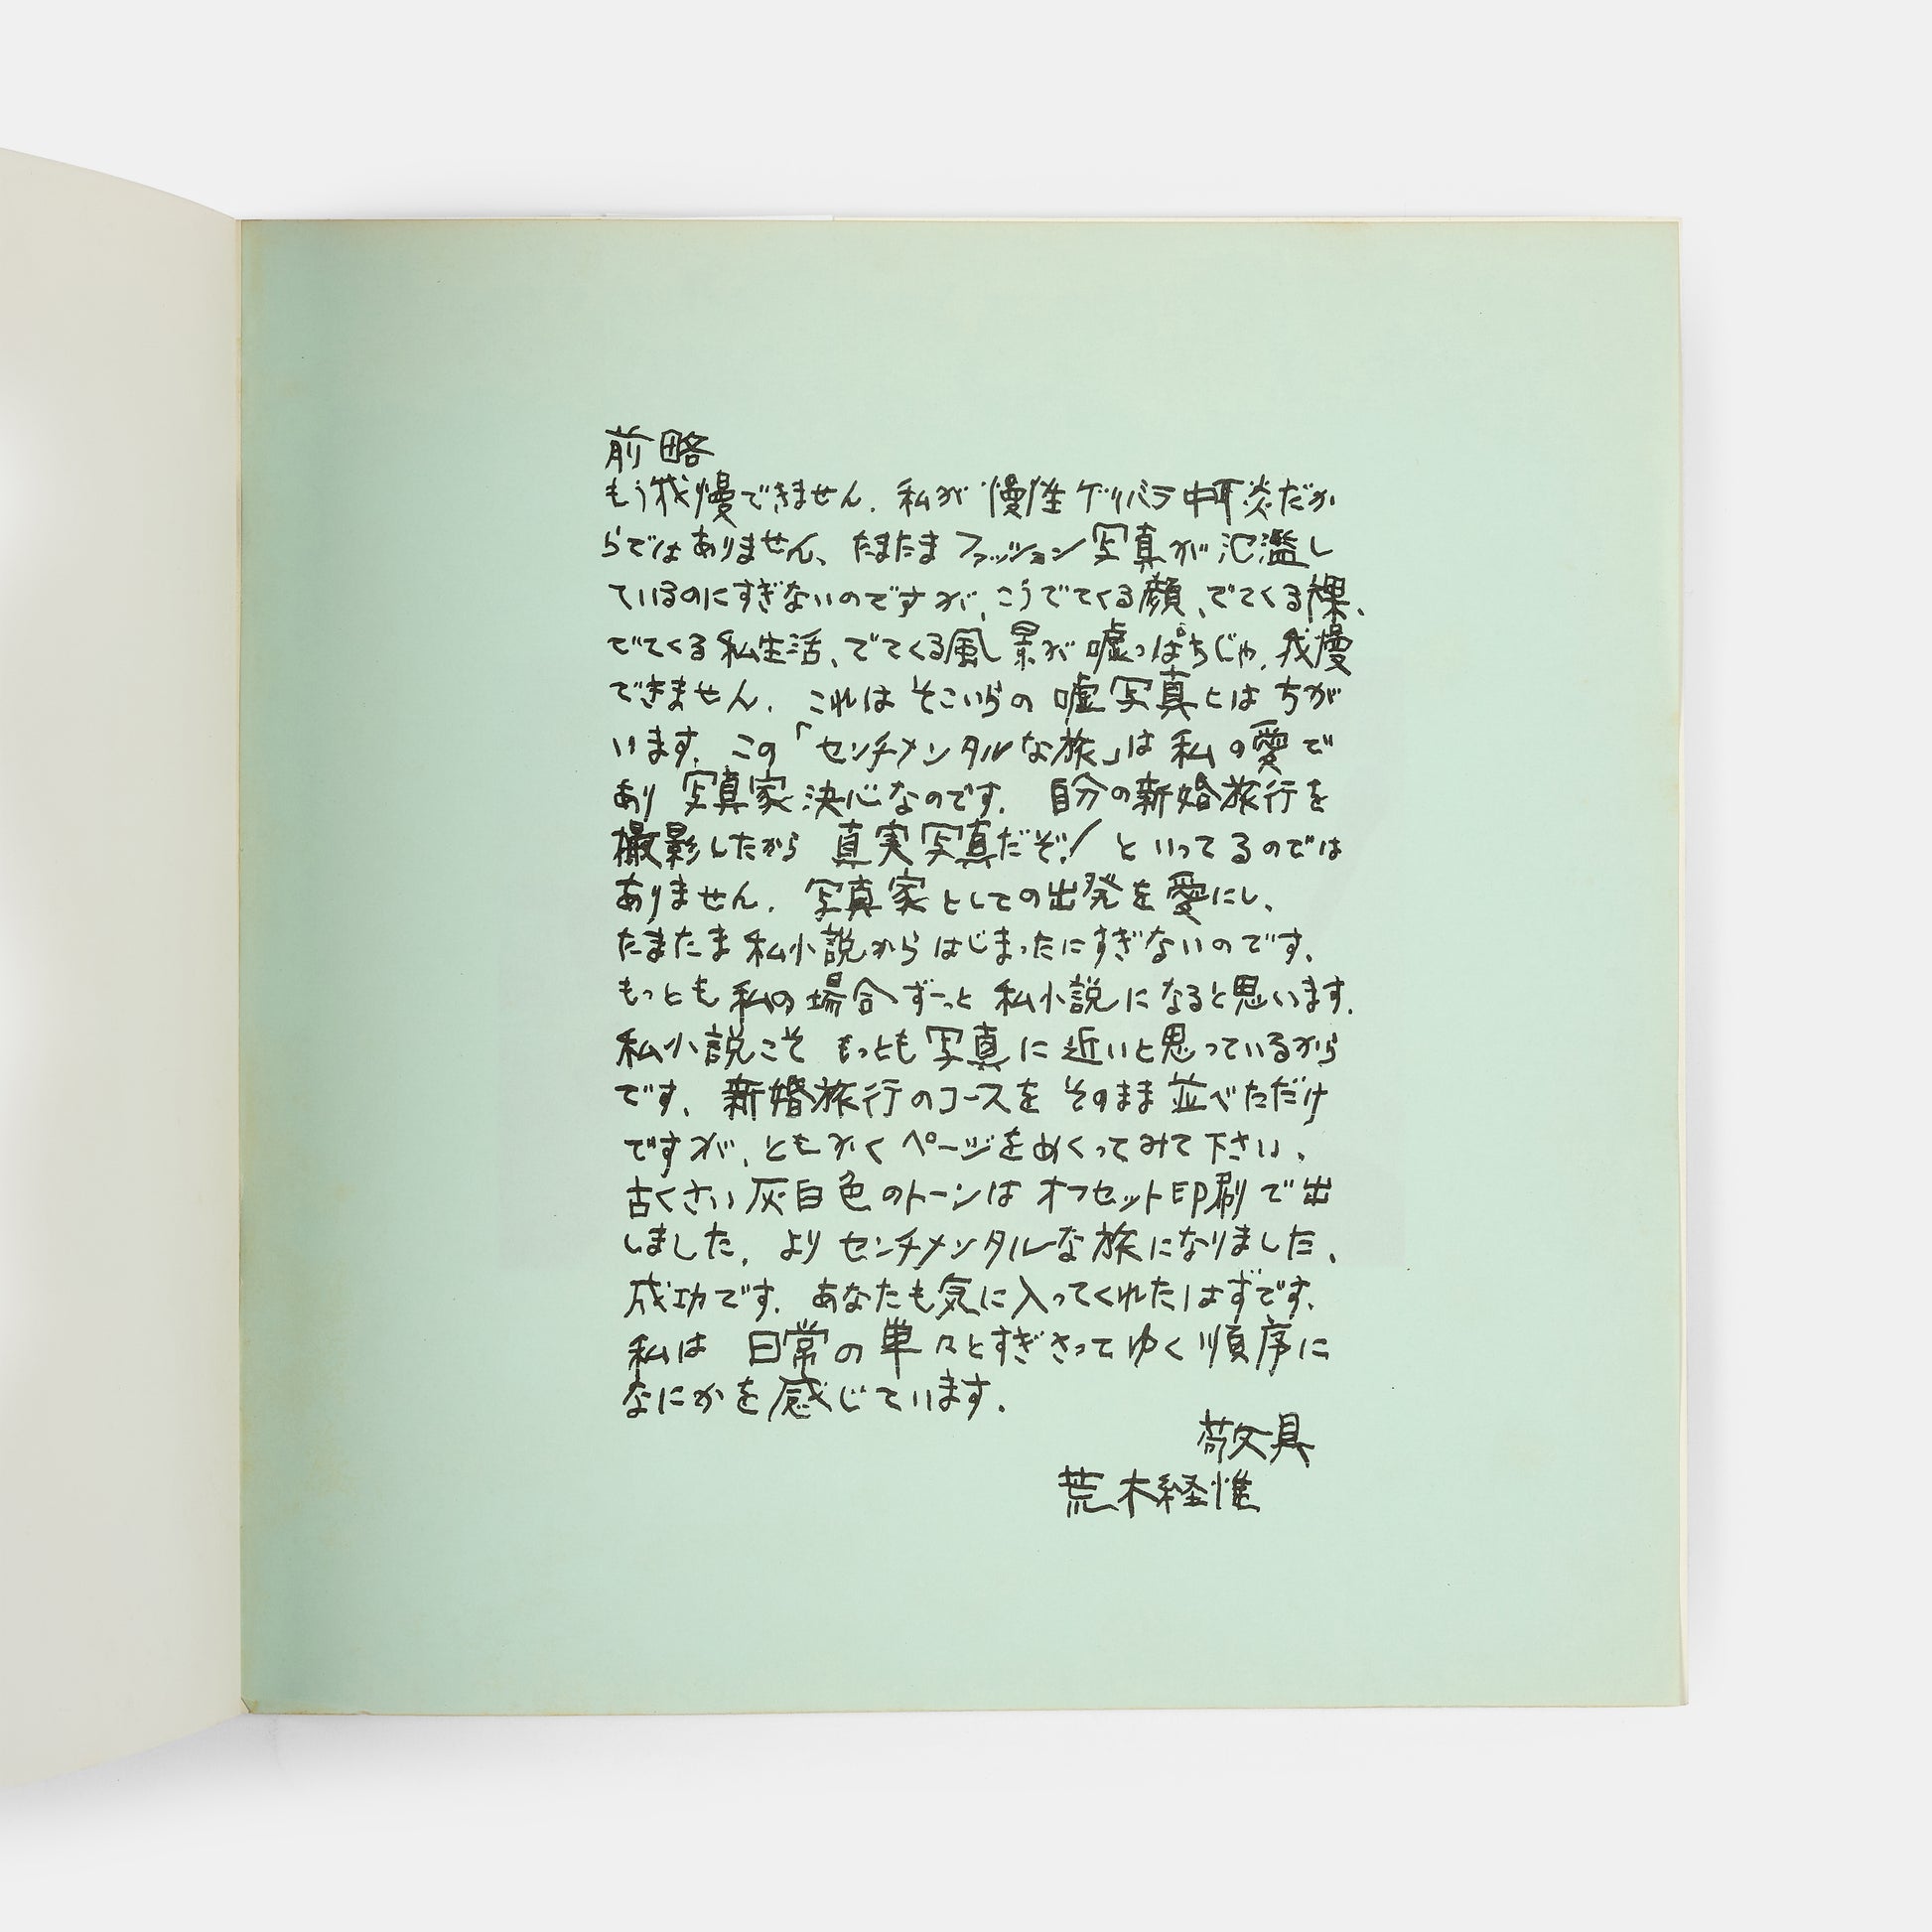 前略
もう我慢できません．私が慢性ゲリバラ中耳炎だか
らではありません、たまたまファッション写真が氾濫し
ているのにすぎないのですが、こうでてくる顔、でてくる裸、
でてくる私生活、でてくる風景が嘘っぱちじゃ、我慢
できません．これはそこいらの嘘写真とはちが
います．この「センチメンタルな旅」は私の愛で
あり写真家決心なのです．自分の新婚旅行を
撮影したから真実写真だぞ！といってるのでは
ありません．写真家としての出発を愛にし、
たまたま私小説からはじまったにすぎないのです．
もっとも私の場合ずーっと私小説になると思います．
私小説こそもっとも写真に近いと思っているから
です．新婚旅行のコースをそのまま並べただけ
ですが、ともかくページをめくってみて下さい．
古くさい灰白色のトーンはオフセット印刷で出
しました．よりセンチメンタルな旅になりました．
成功です．あなたも気に入ってくれたはずです．
私は日常の単々とすぎさってゆく順序に
なにかを感じています．
敬具
荒木経惟